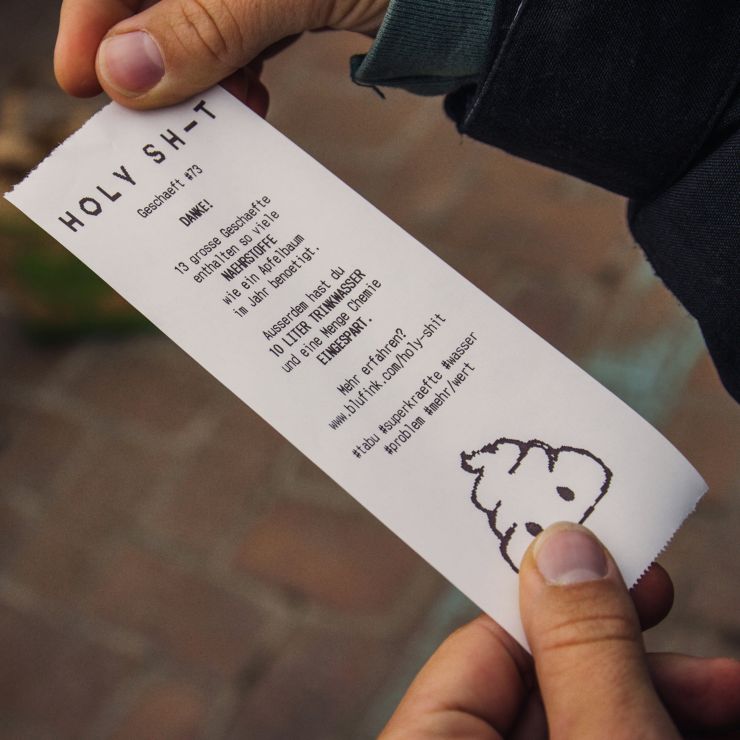 HOLY SH-T
Geschaeft #73
DANKE!
13 grosse Geschaefte
enthalten so viele
NAEHRSTOFFE
wie ein Apfelbaum
im Jahr benoetigt.
Ausserdem hast du
10 LITER TRINKWASSER
und eine Menge Chemie
EINGESPART.
Mehr erfahren?
www.blufink.com/holy-shit
#tabu #superkraefte #wasser
#problem #mehr/wert